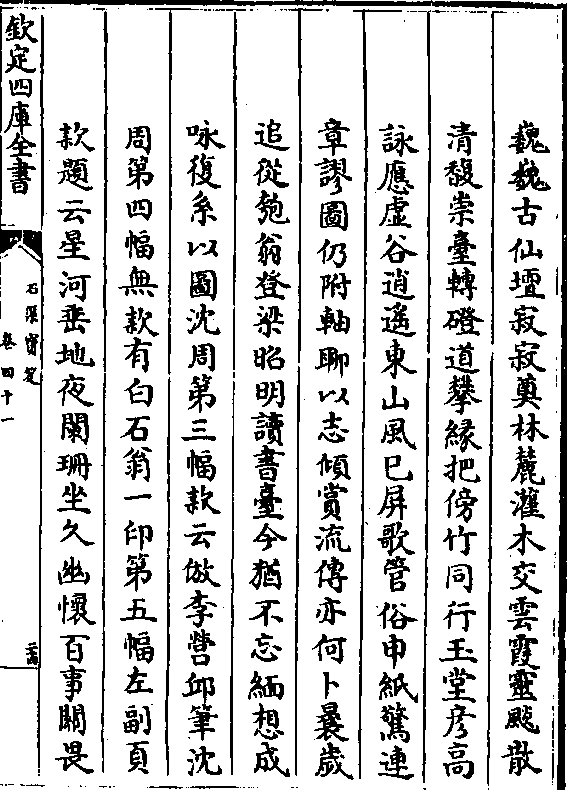 巍巍古仙壇寂寂奠林麓灌木交雲霞靈飇散
清馥崇臺轉磴道攀緣把傍竹同行玉堂彦高
詠應虚谷逍遥東山風已屏歌管俗申紙驚連
章謬圖仍附軸聊以志傾賞流傳亦何卜曩歲
追從匏翁登梁昭明讀書臺今猶不忘緬想成
咏復系以圖沈周第三幅款云倣李營邱筆沈
周第四幅無款有白石翁一印第五幅左副頁
款題云星河垂地夜闌珊坐久幽懷百事關畏
欽定四庫全書
石渠寳笈
卷四十一